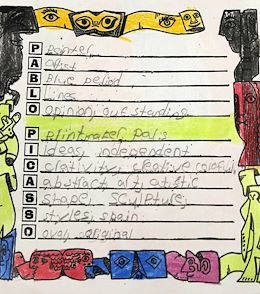 P Painter,
A Artist
B Blue period
L Lines
O Opinion, out standing
P Printmaker, Paris
I Ideas, independent
C creative colorful,
A abstract, art, artistic
S Shape, sculpture,
S styles, spain
O oval, original